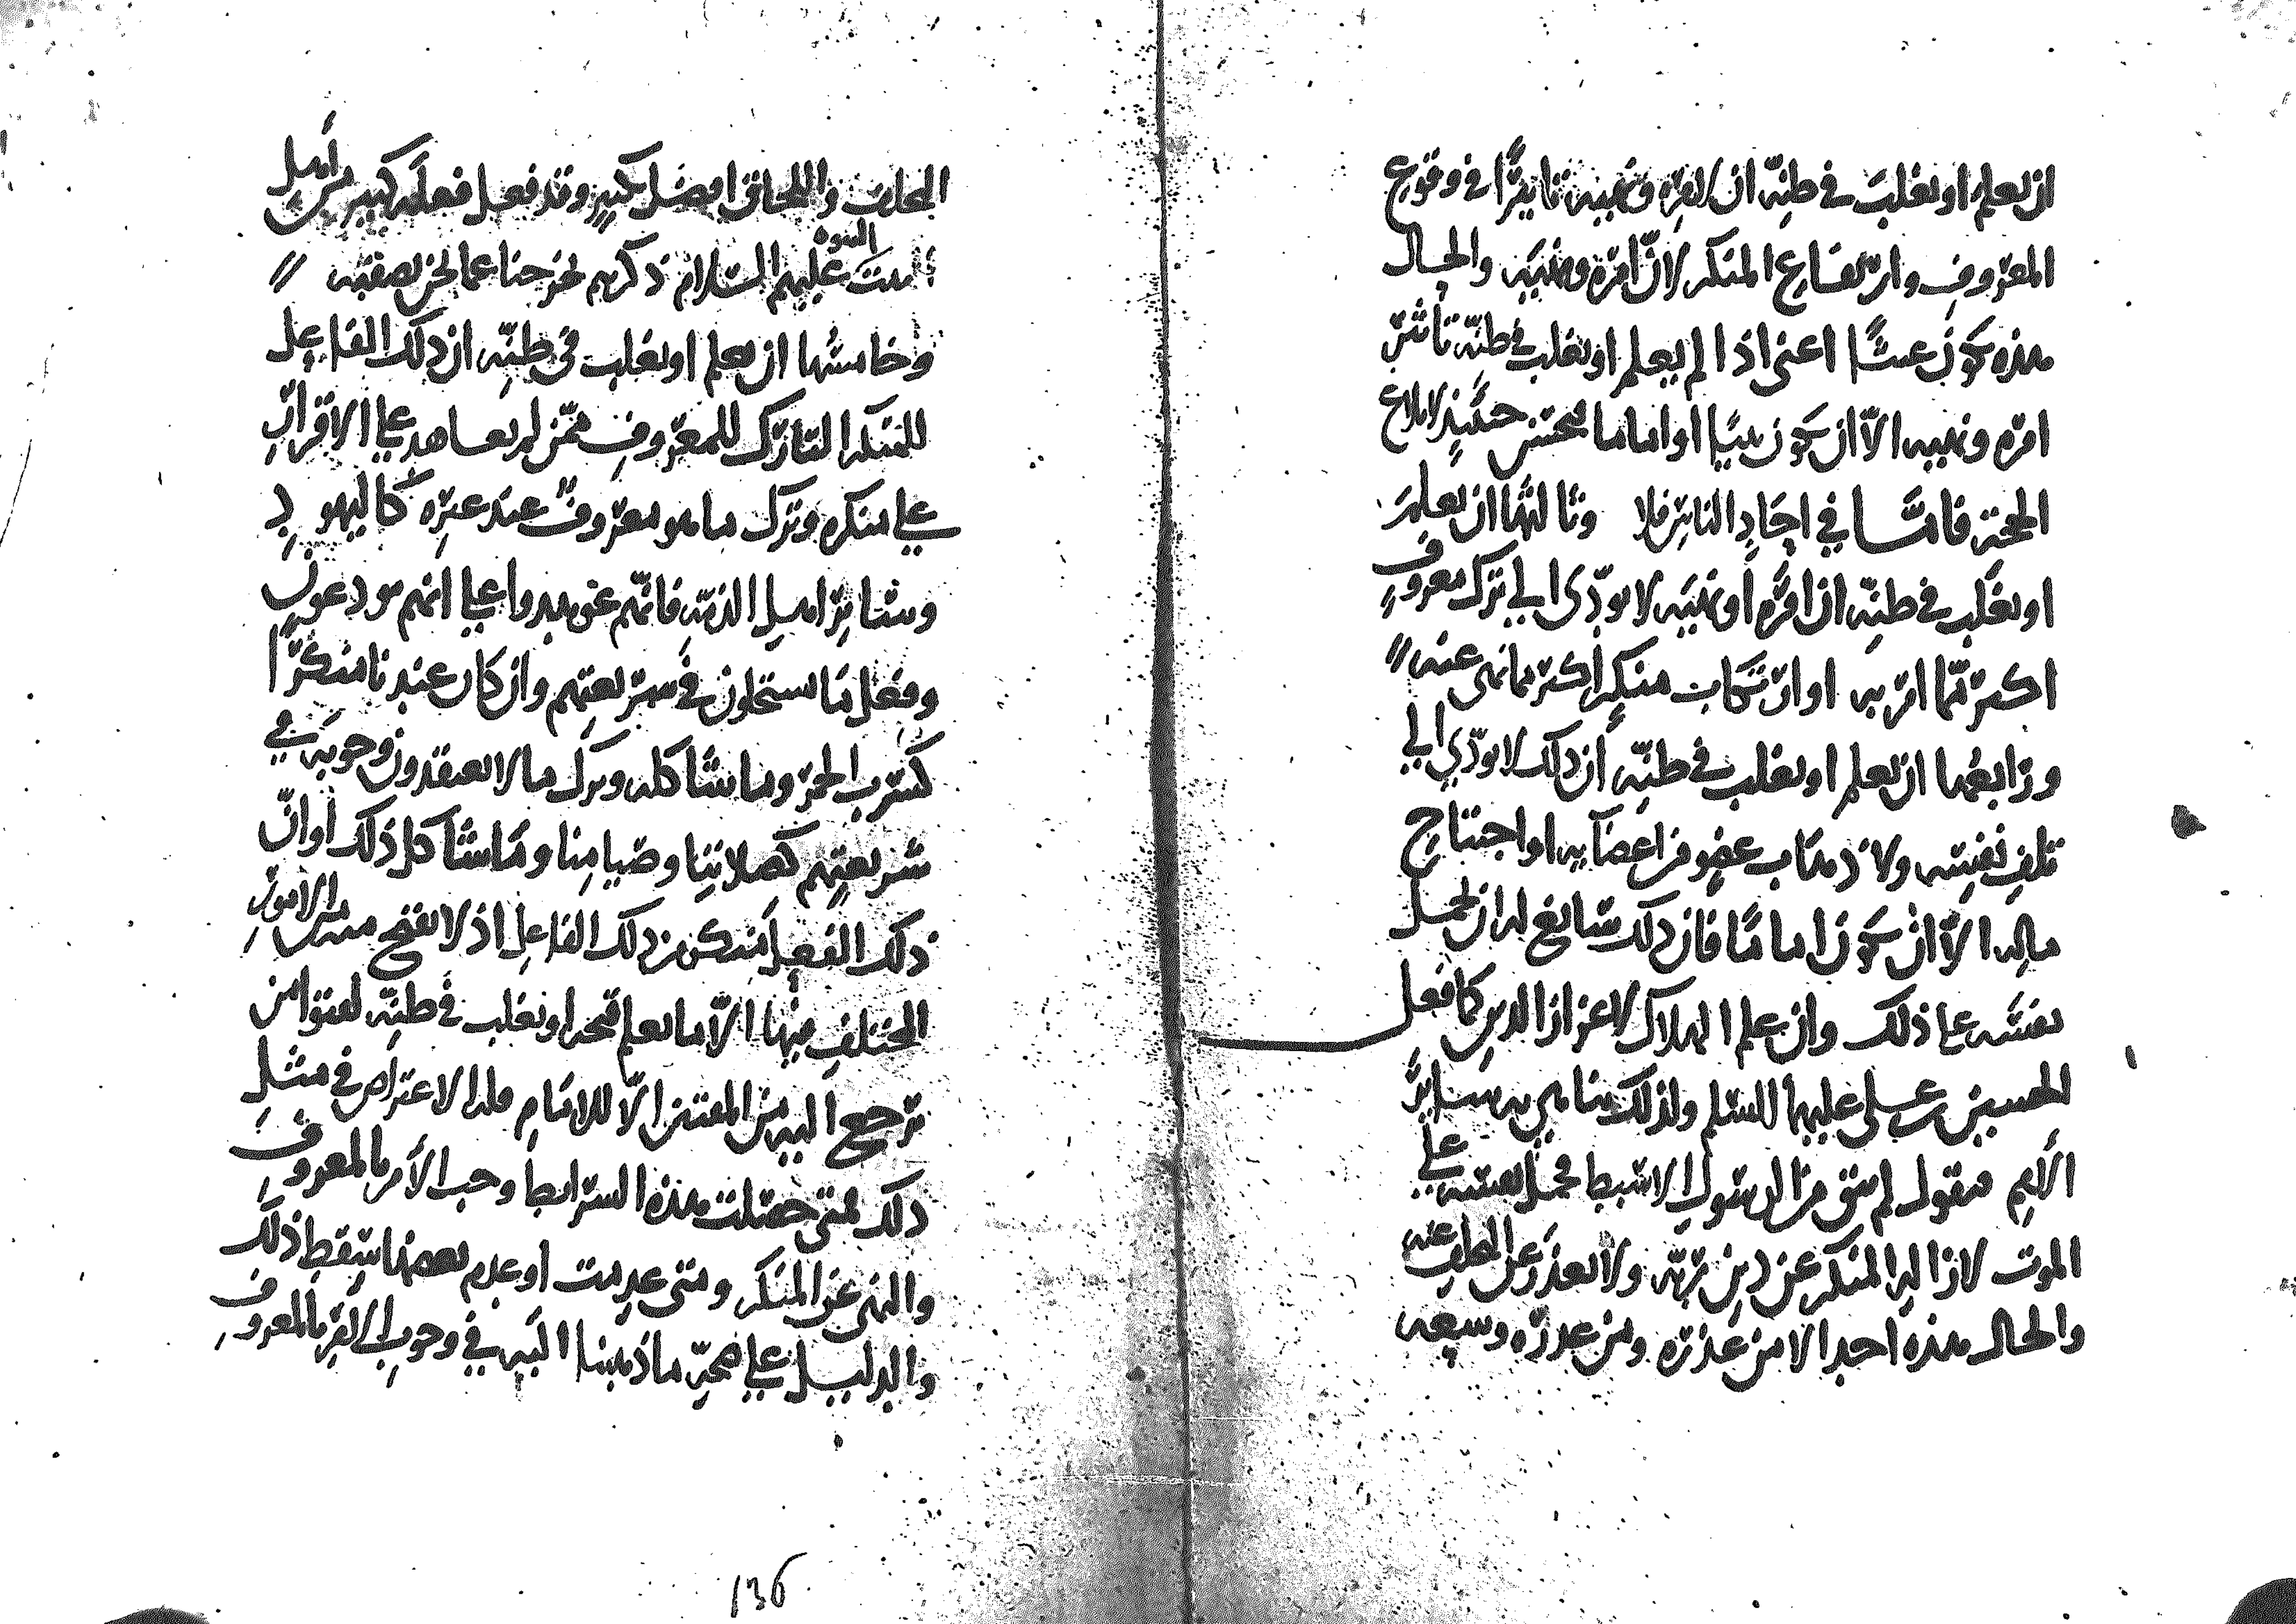 ان يعلم او يغلب في ظنه ان لامره ونهيه تاثيرا في وقوع
المعروف وارتفاع المنكر لان امره ونهيه والحال
هذه يكون عبثا اعني اذا لم يعلم او يغلب في ظنه تاثير
امره ونهيه الا ان يكون نبيا او اماما فيحسن حينئذ لابلاغ
الحجة فاما في احاد الناس فلا وثالثها ان يعلم
او يغلب في ظنه ان امره او نهيه لا يودي الى ترك معروف
اكثر مما امر به او ارتكاب منكر اكثر مما نهى عنه
ورابعها ان يعلم او يغلب في ظنه ان ذلك لا يودي الى
تلف نفسه ولا ذهاب عضو من اعضايه او اجتياح
ماله الا ان يكون اماما فان ذلك سايغ له ان يحمل
نفسه على ذلك وان علم الهلاك لاعزاز الدين كما فعل
الحسين بن علي عليهما السلم ولذلك يباهى به ساير
الامم فنقول لم يبق من الرسول الا سبط فحمل نفسه على
الموت لازالة المنكر عن دين ربه ولا يعذر على التخلف عنه
والحال هذه احد الا من عذره ومن عذره وسعه
التخلف واللحاق افضل كبير وقد فعل فعله كبير من اهل
البيت النبوة عليهم السلام ذكرهم يخرجنا عما نحن بصدده
وخامسها ان يعلم او يغلب في ظنه ان ذلك الفاعل
للمنكر التارك للمعروف ممن لم يعاهد على الاقرار
على منكره وترك ما هو معروف عند غيره كاليهود
وساير اهل الذمة فانهم عوهدوا على انهم مودعون
وفعل ما يستحلون في شريعتهم وان كان عندنا منكرا
كشرب الخمر وما شاكله وترك ما لا يعتقدون وجوبه في
شريعتهم كصلاتنا وصيامنا وما شاكل ذلك او ان
ذلك الفعل منكر من ذلك الفاعل اذ لا يقبح منه الامور
المختلف فيها الا ما يعلم قبحه او يغلب في ظنه لفتوا من
يرجع اليه من المفتين الا للامام فله الاعتراض في مثل
ذلك فمتى حصلت هذه الشرايط وجب الامر بالمعروف
والنهى عن المنكر ومتى عدمت او عدم بعضها سقط ذلك
والدليل على صحة ما ذهبنا اليه في وجوب الامر بالمعروف
136